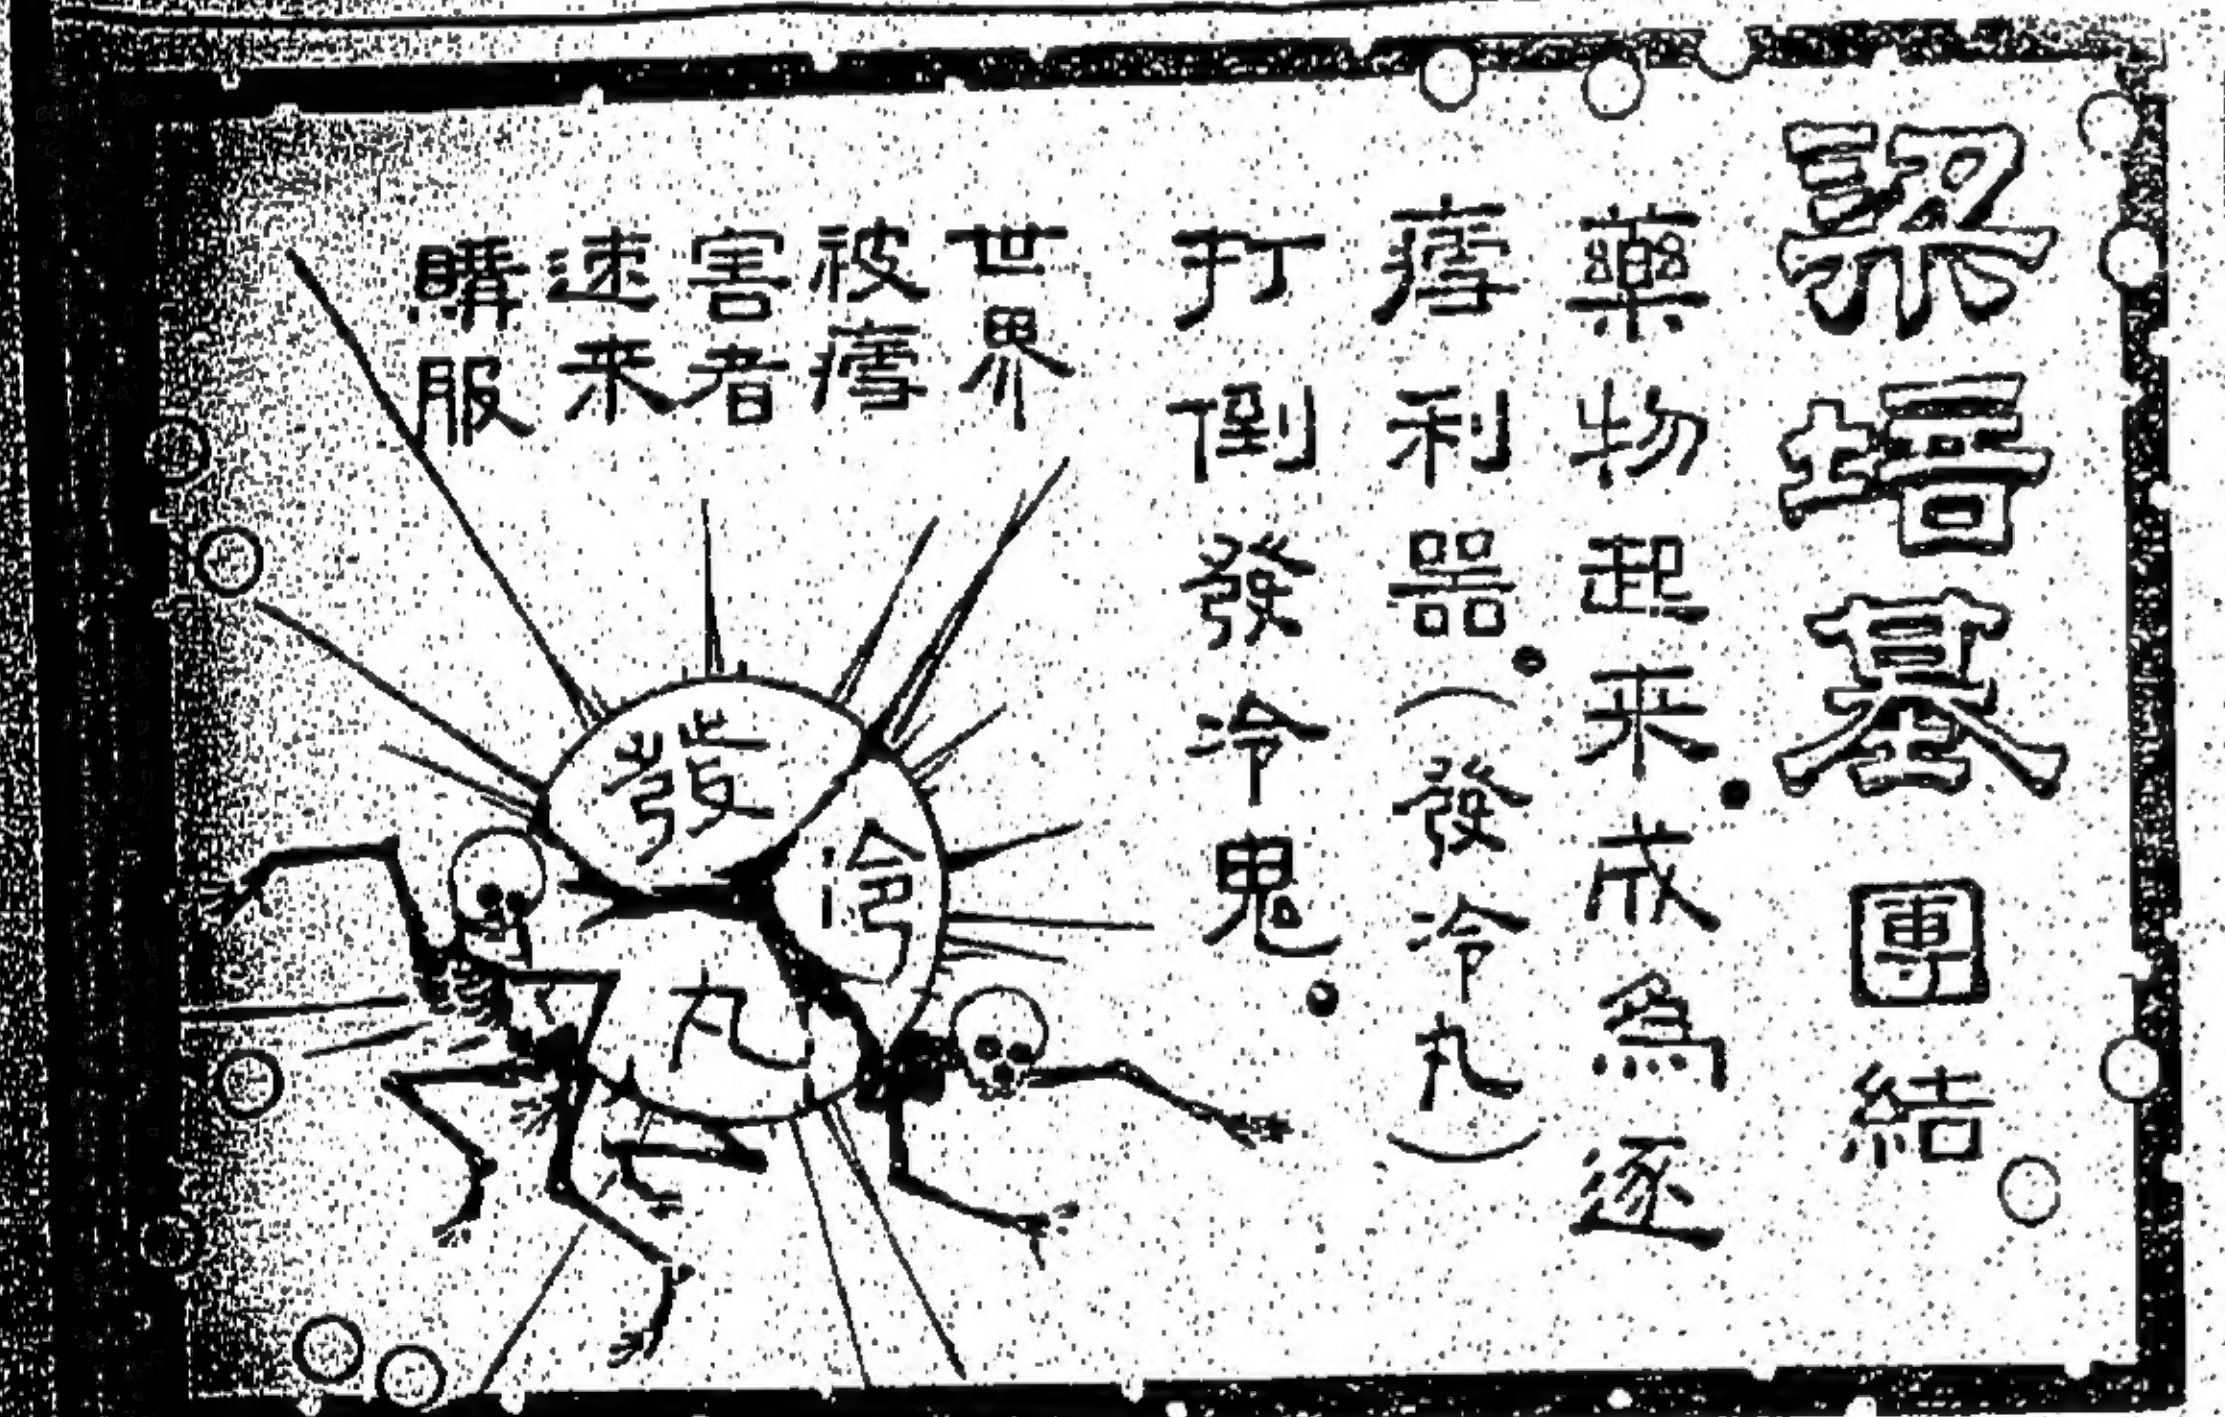 梁培基團結
藥物起来。成為逐
瘧利器。(發冷丸)
打倒發冷鬼。
世界
被瘧
害者
速来
購服
發
冷
丸